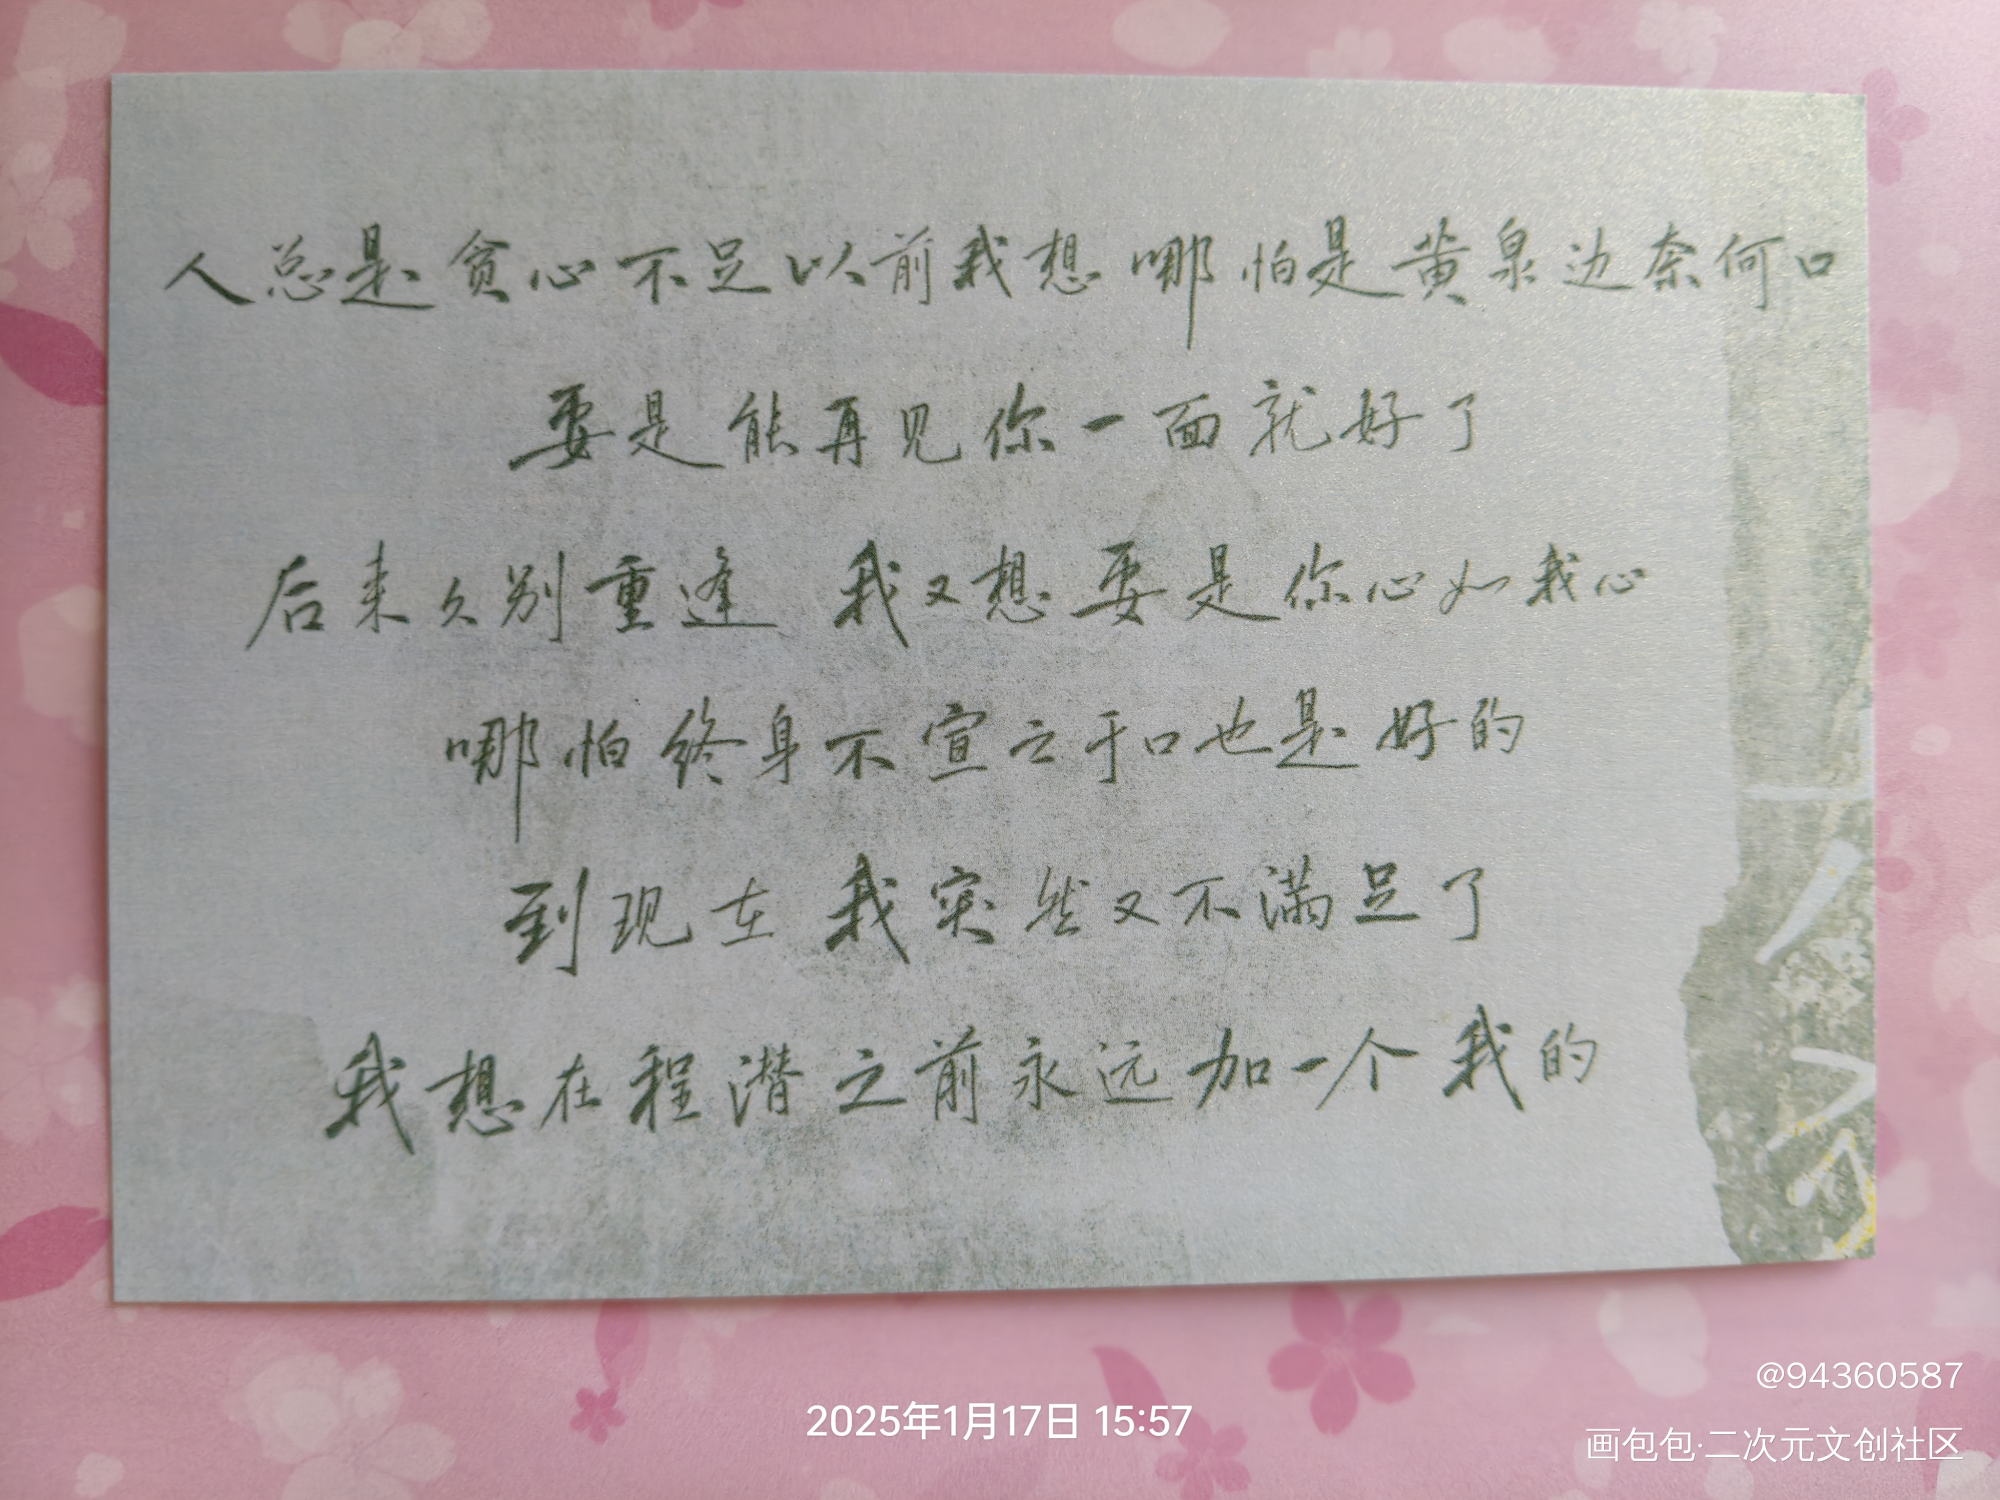 人总是贪心不足以前我想哪怕是黄泉边奈何口
要是能再见你一面就好了
后来久别重逢 我又想要是你心如我心
哪怕终身不宣之于口也是好的
到现在 我突然又不满足了
我想在程潜之前永远加一个我的
2025年1月17日 15:57
@94360587
画包包·二次元文创社区